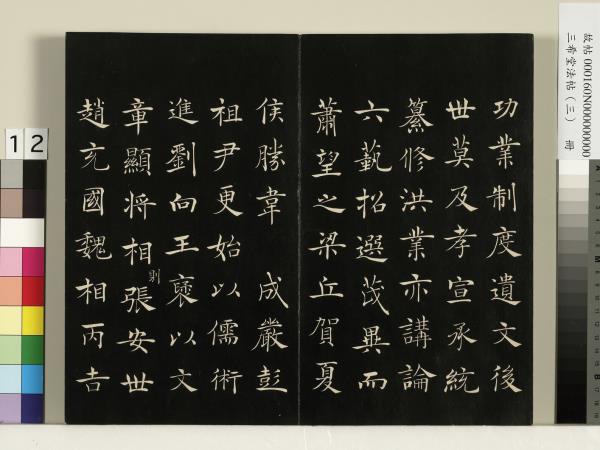 故帖 000160N000000000
三希堂法帖（三） 冊
功業制度遺文後
世莫及孝宣承統
纂修洪業亦講論
六藝招選茂異而
蕭望之梁丘賀夏
侯勝韋 成嚴彭
祖尹更始以儒術
進劉向王褒以文
章顯將相則張安世
趙充國魏相丙吉
12